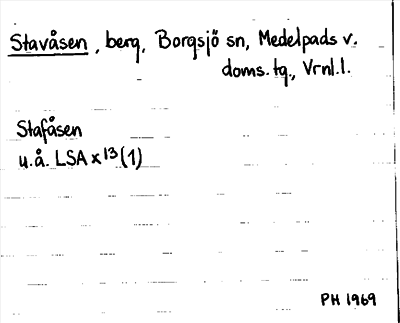 Stavåsen, berg, Borgsjö sn, Medelpads v.
doms.tg., Vrnl.l.
Stafåsen
u.å. LSA x 13 (1)
PH 1969